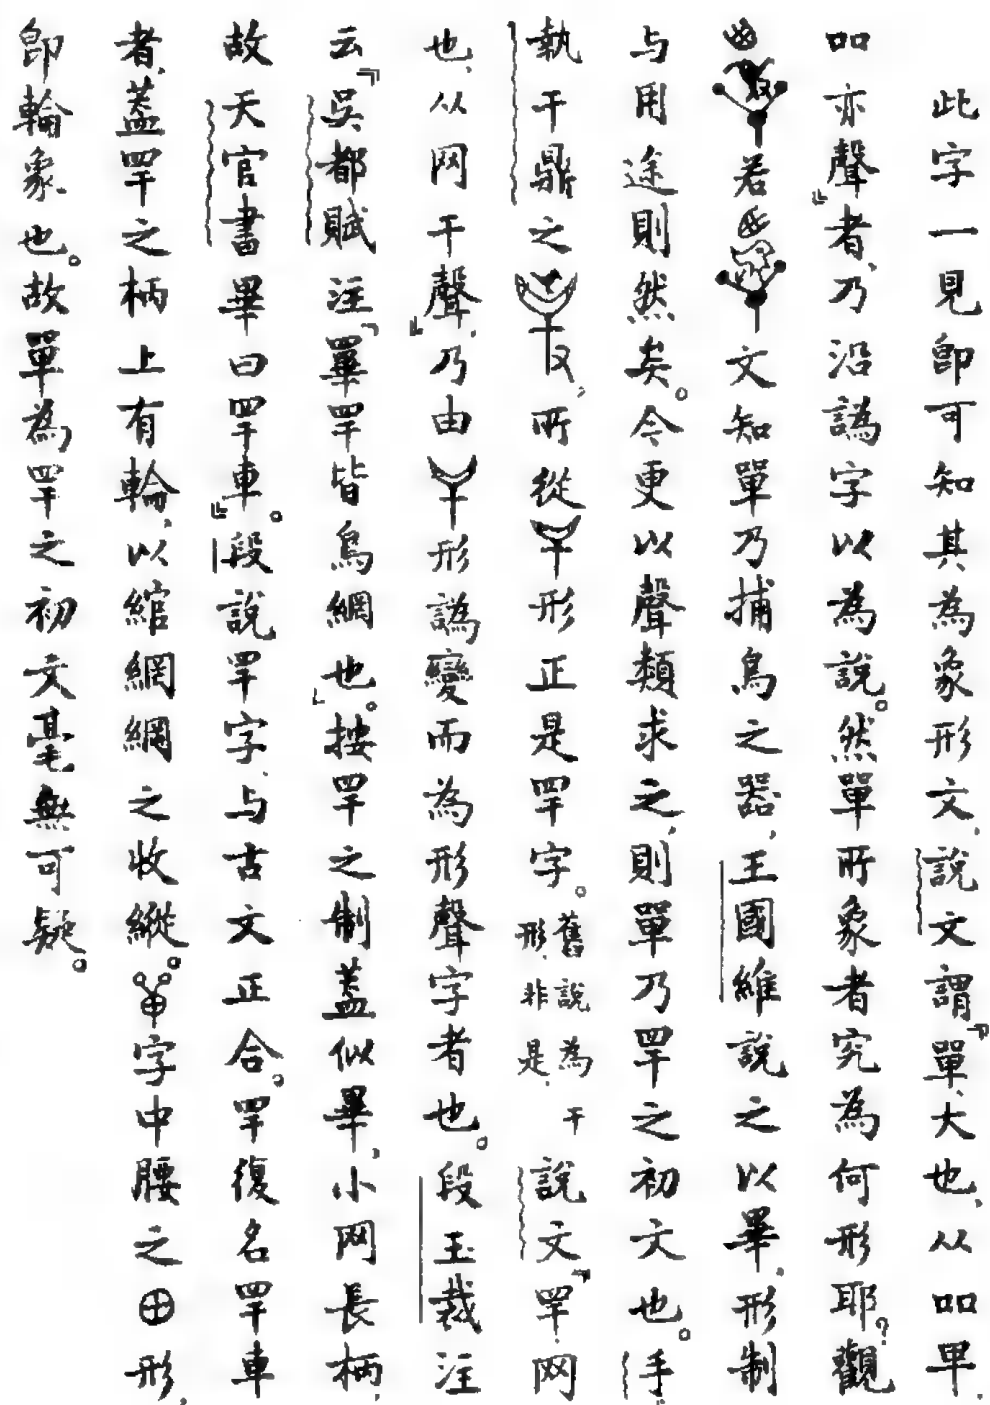 此字一見卽可知其為象形文，說文謂『單、大也，从吅甲，
吅亦聲』者，乃沿譌字以為說。然單所象者究為何形耶？觀
若文知單乃捕鳥之器，王國維說之以畢，形制
与用途則然矣。今更以聲類求之，則單乃罕之初文也。手
執干鼎之，所從形正是罕字。舊說為干形，非是。說文『罕，网
也，从网干聲』，乃由形譌變而為形聲字者也。段玉裁注
云『吳都賦注「罼罕皆鳥網也」。按罕之制蓋似畢，小网長柄，
故天官書畢曰罕車』。段說罕字，与古文正合。罕復名罕車
者，蓋罕之柄上有輪，以綰網網之收縱。字中腰之形，
卽輪象也。故單為罕之初文毫無可疑。